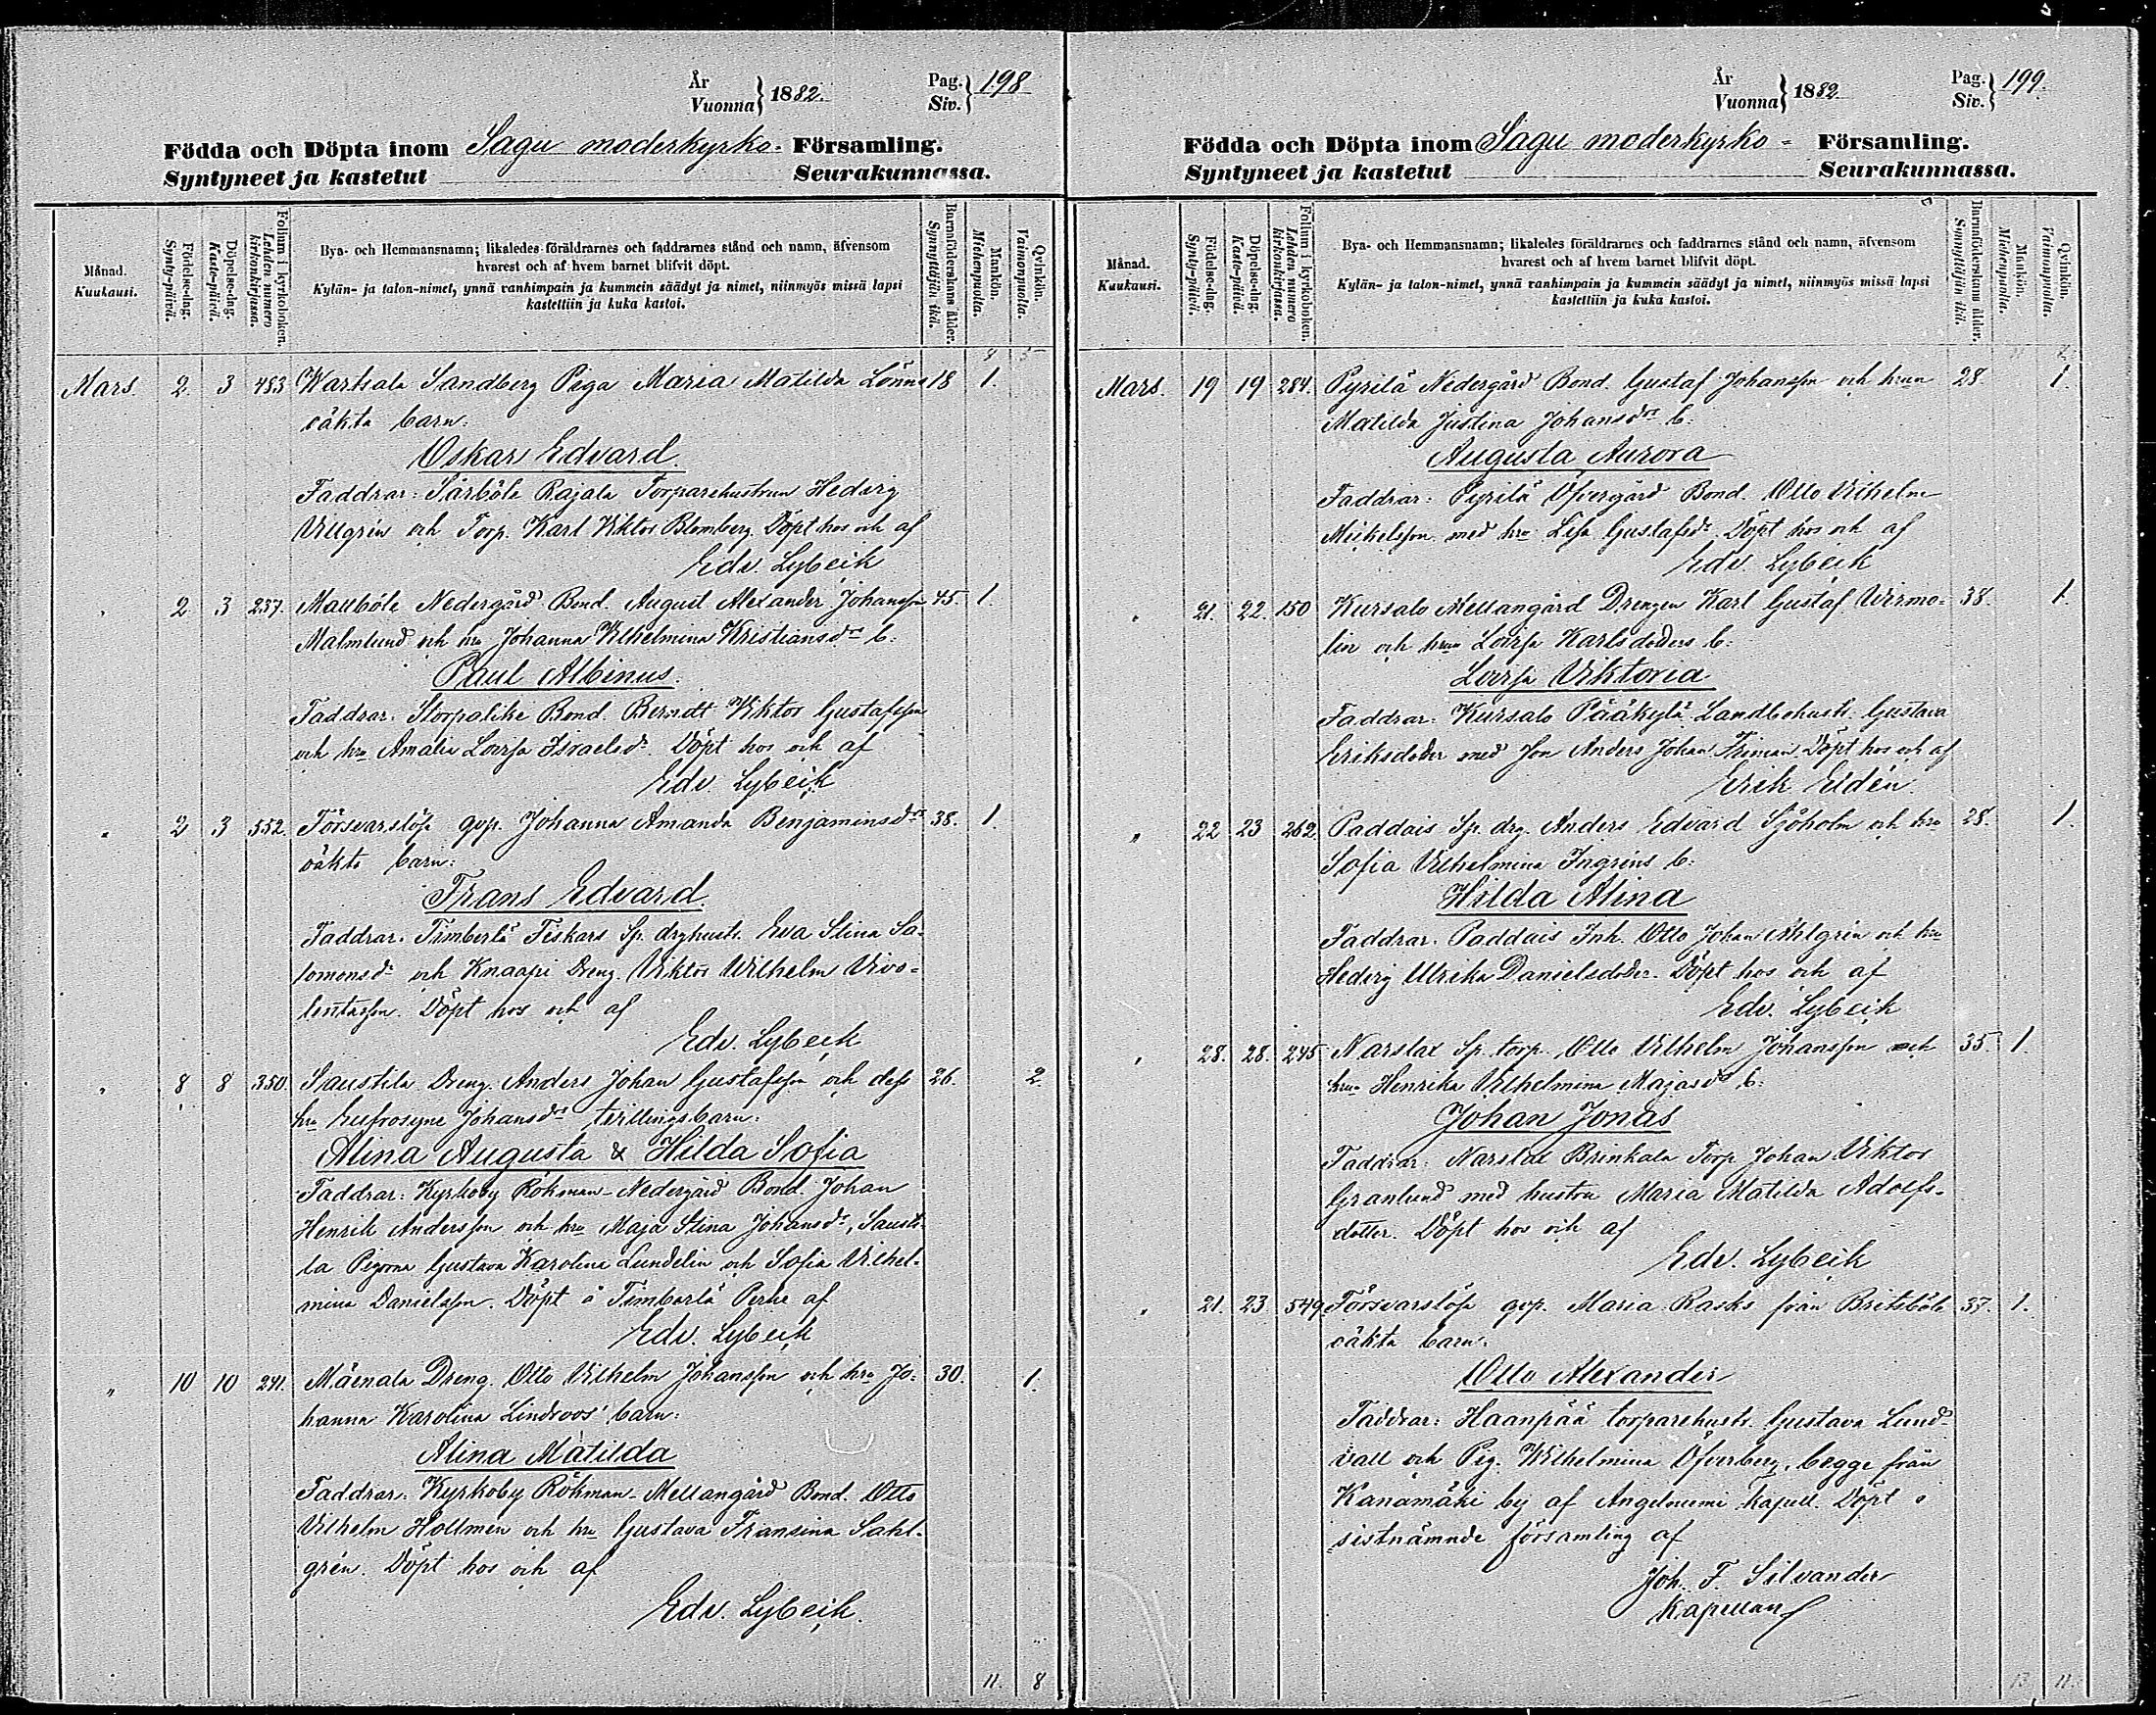 År
Vuonna } 1882.
Pag.
Siv. } 198
Födda och Döpta inom Sagu moderkyrko- Församling.
Syntyneet ja kastetut Seurakunnassa.
Månad.
Kuukausi.
Födelse-dag.
Synty-päivä.
Döpelse-dag.
Kaste-päivä.
Folium i kyrkoboken.
Lehden numero
kirkonkirjassa.
Bya- och Hemmansnamn; likaledes föräldrarnes och faddrarnes stånd och namn, äfvensom
hvarest och af hvem barnet blifvit döpt.
Kylän- ja talon-nimet, ynnä vanhimpain ja kummein säädyt ja nimet, niinmyös missä lapsi
kastettiin ja kuka kastoi.
Barnaföderskans ålder.
Synnyttäjän ikä.
Mankön.
Miehenpuolta.
Qvinkön.
Vaimonpuolta.
8 5
Mars. 2. 3 483 Wartsala Sandberg Piga Maria Matilda Lönns 18 1.
oäkta barn:
Oskar Edvard.
Faddrar: Särböle Rajala Torparehustrun Hedvig
Villgrén och Torp. Karl Viktor Blomberg. Döpt hos och af
Edv. Lybeck
" 2 3 237. Mattböle Nedergård Bond. August Alexander Johansson 45. 1.
Malmlund och hru Johanna Vilhelmina Kristiansdr b:
Paul Albinus.
Faddrar: Storpalike Bond. Berndt Viktor Gustafsson
och hru Amalia Lovisa Israelsdr. Döpt hos och af
Edv. Lybeck
" 2 3 552. Försvarslösa qvp. Johanna Amanda Benjaminsdrs 38. 1.
oäkta barn:
Frans Edvard.
Faddrar: Timberlä Fiskars Sp. drghustr. Eva Stina Sa-
lomonsdr och Knaapi Dreng. Viktor Wilhelm Vivo-
lentasson. Döpt hos och af
Edv. Lybeck
" 8 8 350. Saustila Dreng. Anders Johan Gustafsson och dess 26. 2.
hru Eufrosyne Johansdrs tvillingsbarn:
Alina Augusta & Hilda Sofia
Faddrar: Kyrkoby Rökman-Nedergård Bond. Johan
Henrik Andersson och hru Maja Stina Johansdr, Sausti-
la Pigorna Gustava Karolina Lundelin och Sofia Vilhel-
mina Danielsson. Döpt å Timberlä Perhe af
Edv. Lybeck
" 10 10 241. Mäenala Dreng. Otto Vilhelm Johansson och hru Jo- 30. 1.
hanna Karolina Lindroos' barn:
Alina Matilda
Faddrar: Kyrkoby Rökman-Mellangård Bond. Otto
Vilhelm Hollmén och hru Gustava Fransina Sahl-
grén. Döpt hos och af
Edv. Lybeck.
11. 8
År
Vuonna } 1882
Pag.
Siv. } 199.
Födda och Döpta inom Sagu moderkyrko- Församling.
Syntyneet ja kastetut Seurakunnassa.
Månad.
Kuukausi.
Födelse-dag.
Synty-päivä.
Döpelse-dag.
Kaste-päivä.
Folium i kyrkoboken.
Lehden numero
kirkonkirjassa.
Bya- och Hemmansnamn; likaledes föräldrarnes och faddrarnes stånd och namn, äfvensom
hvarest och af hvem barnet blifvit döpt.
Kylän- ja talon-nimet, ynnä vanhimpain ja kummein säädyt ja nimet, niinmyös missä lapsi
kastettiin ja kuka kastoi.
Barnaföderskans ålder.
Synnyttäjän ikä.
Mankön.
Miehenpuolta.
Qvinkön.
Vaimonpuolta.
Mars. 19 19 284. Pyrilä Nedergård Bond. Gustaf Johansson och hrun 28 1.
Matilda Justina Johansdrs b:
Augusta Aurora
Faddrar: Pyrilä Öfvergård Bond. Otto Vilhelm
Mickelsson med hru Lisa Gustafsdr. Döpt hos och af
Edv. Lybeck
" 21. 22. 150 Kursalo Mellangård Drengen Karl Gustaf Virmo- 38. 1.
lin och hrun Lovisa Karlsdotters b:
Lovisa Viktoria
Faddrar: Kursalo Pääkylä Landbohustr. Gustava
Eriksdotter med Son Anders Johan Friman Döpt hos och af
Erik Eldén.
" 22 23 262. Paddais Sp. drg. Anders Edvard Sjöholm och hru 28. 1.
Sofia Vilhelmina Ingréns b:
Hilda Alina
Faddrar: Paddais Inh. Otto Johan Ahlgrén och hru
Hedvig Ulrika Danielsdotter. Döpt hos och af
Edv. Lybeck
" 28. 28. 245 Narslax Sp. torp. Otto Vilhelm Johansson och 35. 1.
hru Henrika Vilhelmina Majasdrs b:
Johan Jonas
Faddrar: Narslax Brinkala Torp Johan Viktor
Granlund med hustru Maria Matilda Adolfs-
dotter. Döpt hos och af
Edv. Lybeck
" 21. 23 549. Försvarslösa qvp. Maria Rasks från Britsböle 37. 1.
oäkta barn.
Otto Alexander
Faddrar: Haanpää torparehustr. Gustava Lund-
vall och Pig. Wilhelmina Öfverberg, begge från
Kanamäki by af Angelniemi kapell. Döpt i
sistnämnde församling af
Joh. F. Silvander
Kapellan
13 11.